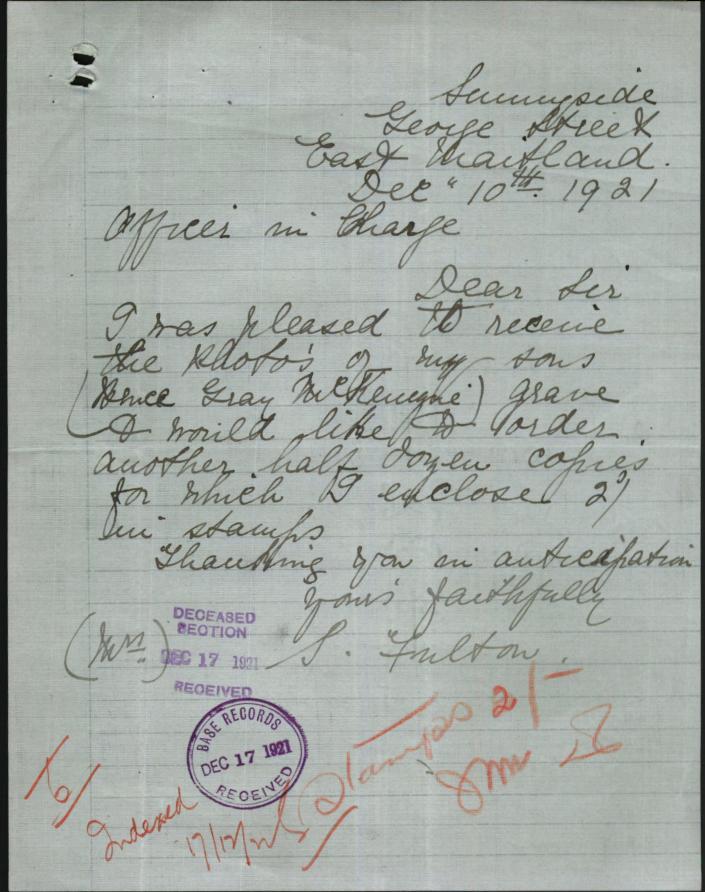 Sunnyside
George Street
East Maitland.
Dec" 10th. 1921
Officer in Charge
Dear Sir
I was pleased to receive
the Photo's of my sons
(Bruce Gray McKenzie) grave
& would like to order
another half dozen copies
for which I enclose 2/
in stamps
Thanking you in anticipation
yours faithfully
(Mrs) S. Fulton.
DECEASED
SECTION
DEC 17 1921
RECEIVED
BASE RECORDS
DEC 17 1921
RECEIVED
Stamps 2/-
Indexed
17/12/21